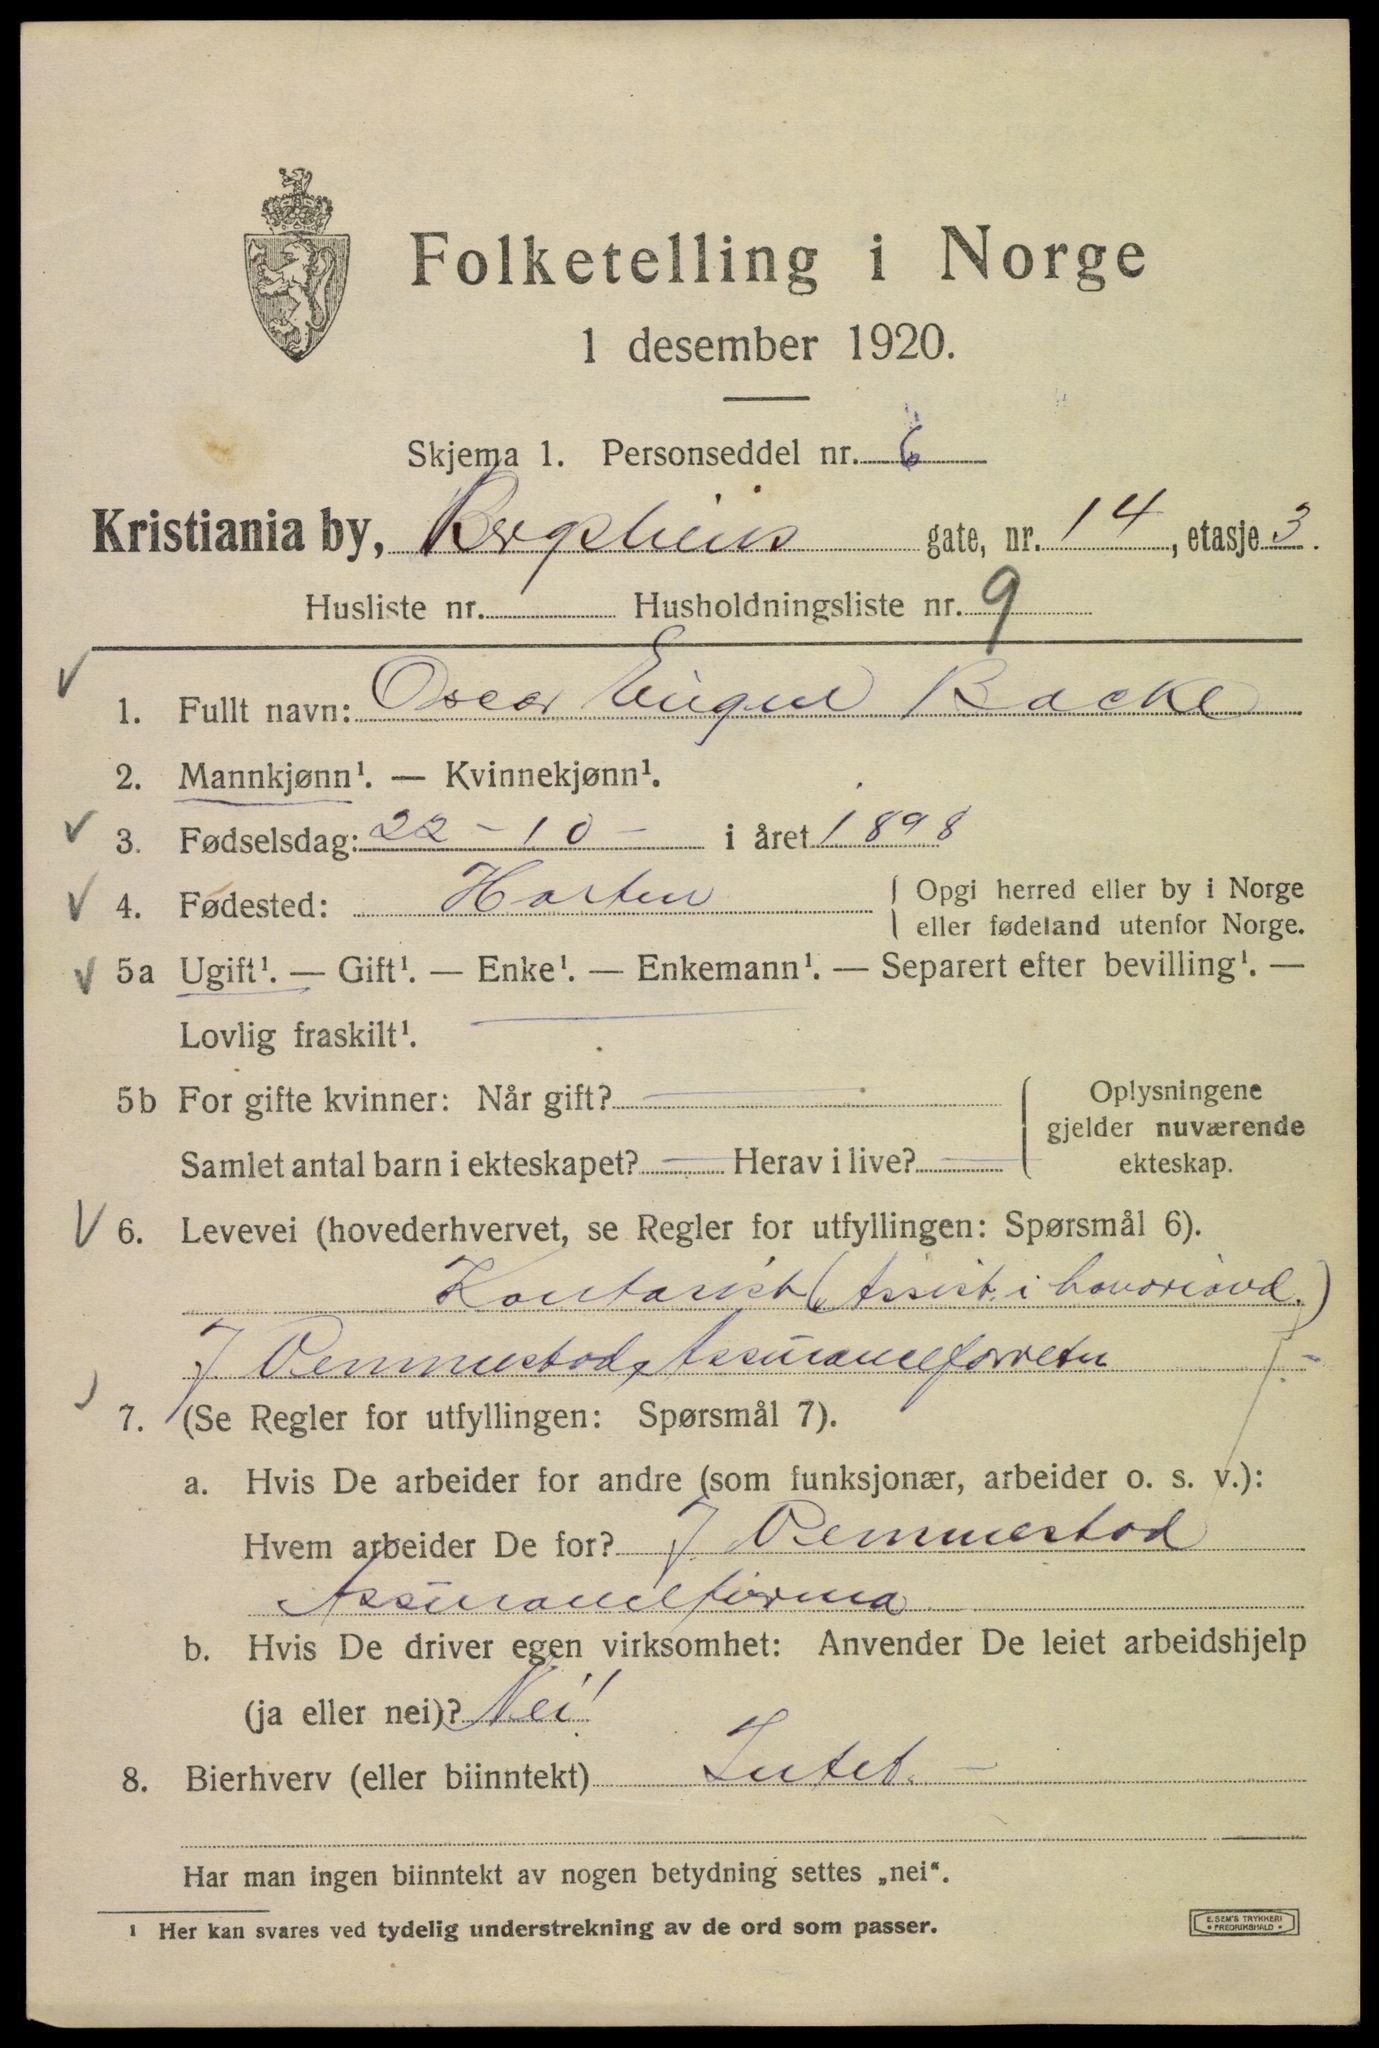 Folketelling i Norge
1 desember 1920.
Skjema 1. Personseddel nr. 6
Kristiania by, Bergsliens gate, nr. 14, etasje 3.
Husliste nr. Husholdningsliste nr. 9
1. Fullt navn: Oscar Eugen Backe
2. Mannkjønn¹. — Kvinnekjønn¹.
3. Fødselsdag: 22 - 10 - i året 1898
4. Fødested: Horten { Opgi herred eller by i Norge
eller fødeland utenfor Norge.
5a Ugift¹. — Gift¹. — Enke¹. — Enkemann¹. — Separert efter bevilling¹. —
Lovlig fraskilt¹.
5b For gifte kvinner: Når gift? — { Oplysningene
gjelder nuværende
Samlet antal barn i ekteskapet? — Herav i live? — ekteskap.
6. Levevei (hovederhvervet, se Regler for utfyllingen: Spørsmål 6).
Kontorist (Assist. i havariavd.)
J Assuranceforretn
7. (Se Regler for utfyllingen: Spørsmål 7).
a. Hvis De arbeider for andre (som funksjonær, arbeider o. s. v.):
Hvem arbeider De for? J
Assurancefirma
b. Hvis De driver egen virksomhet: Anvender De leiet arbeidshjelp
(ja eller nei)? Nei!
8. Bierhverv (eller biinntekt) Intet. —
Har man ingen biinntekt av nogen betydning settes „nei“.
¹ Her kan svares ved tydelig understrekning av de ord som passer.
E. SEM'S TRYKKERI
• FREDRIKSHALD •